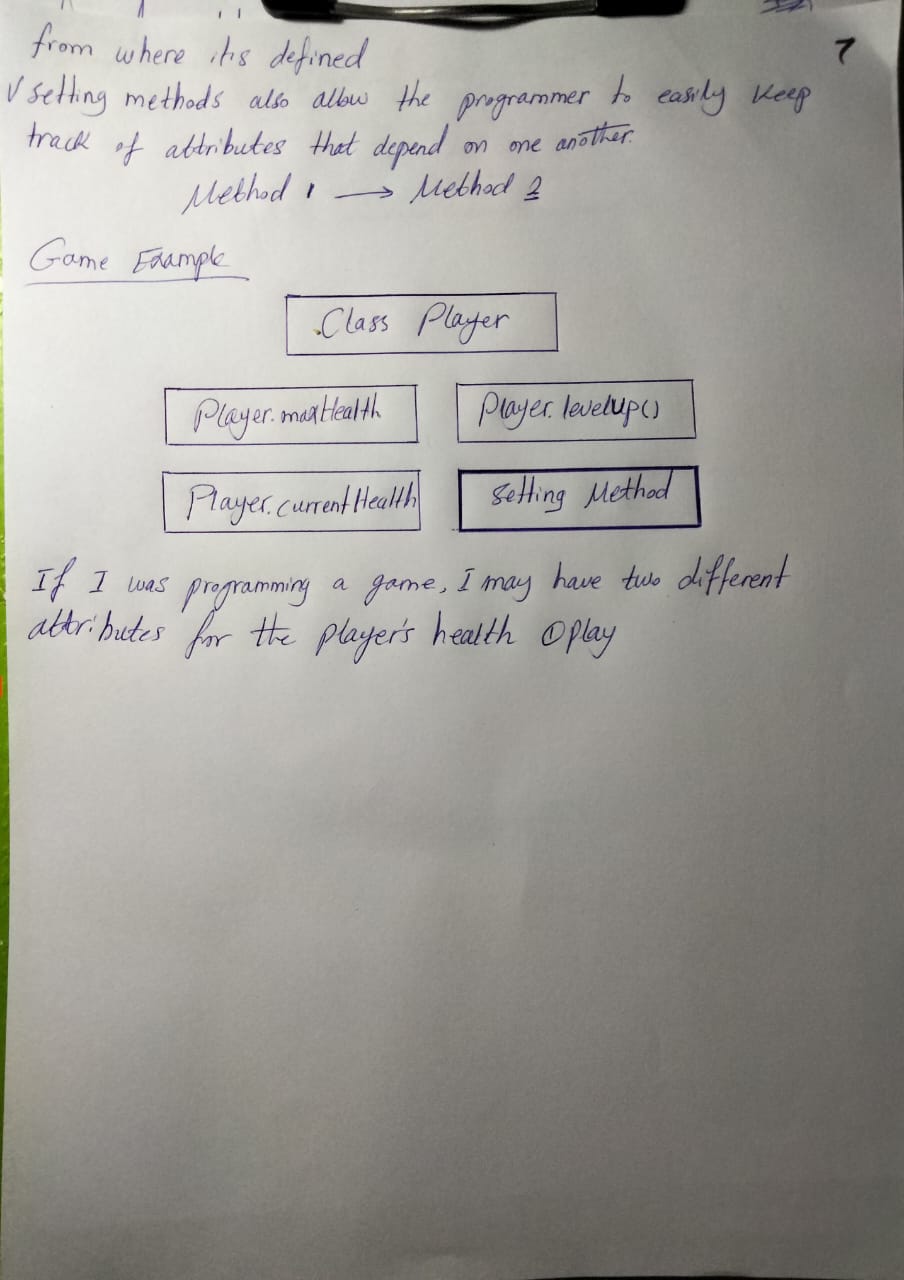 from where its defined
7
√ setting methods also allow the programmer to easily keep
track of attributes that depend on one another.
Method 1 → Method 2
Game Example
Class Player
Player.maxHealth
Player.levelup()
Player.currentHealth
Setting Method
If I was programming a game, I may have two different
attributes for the player's health ① play